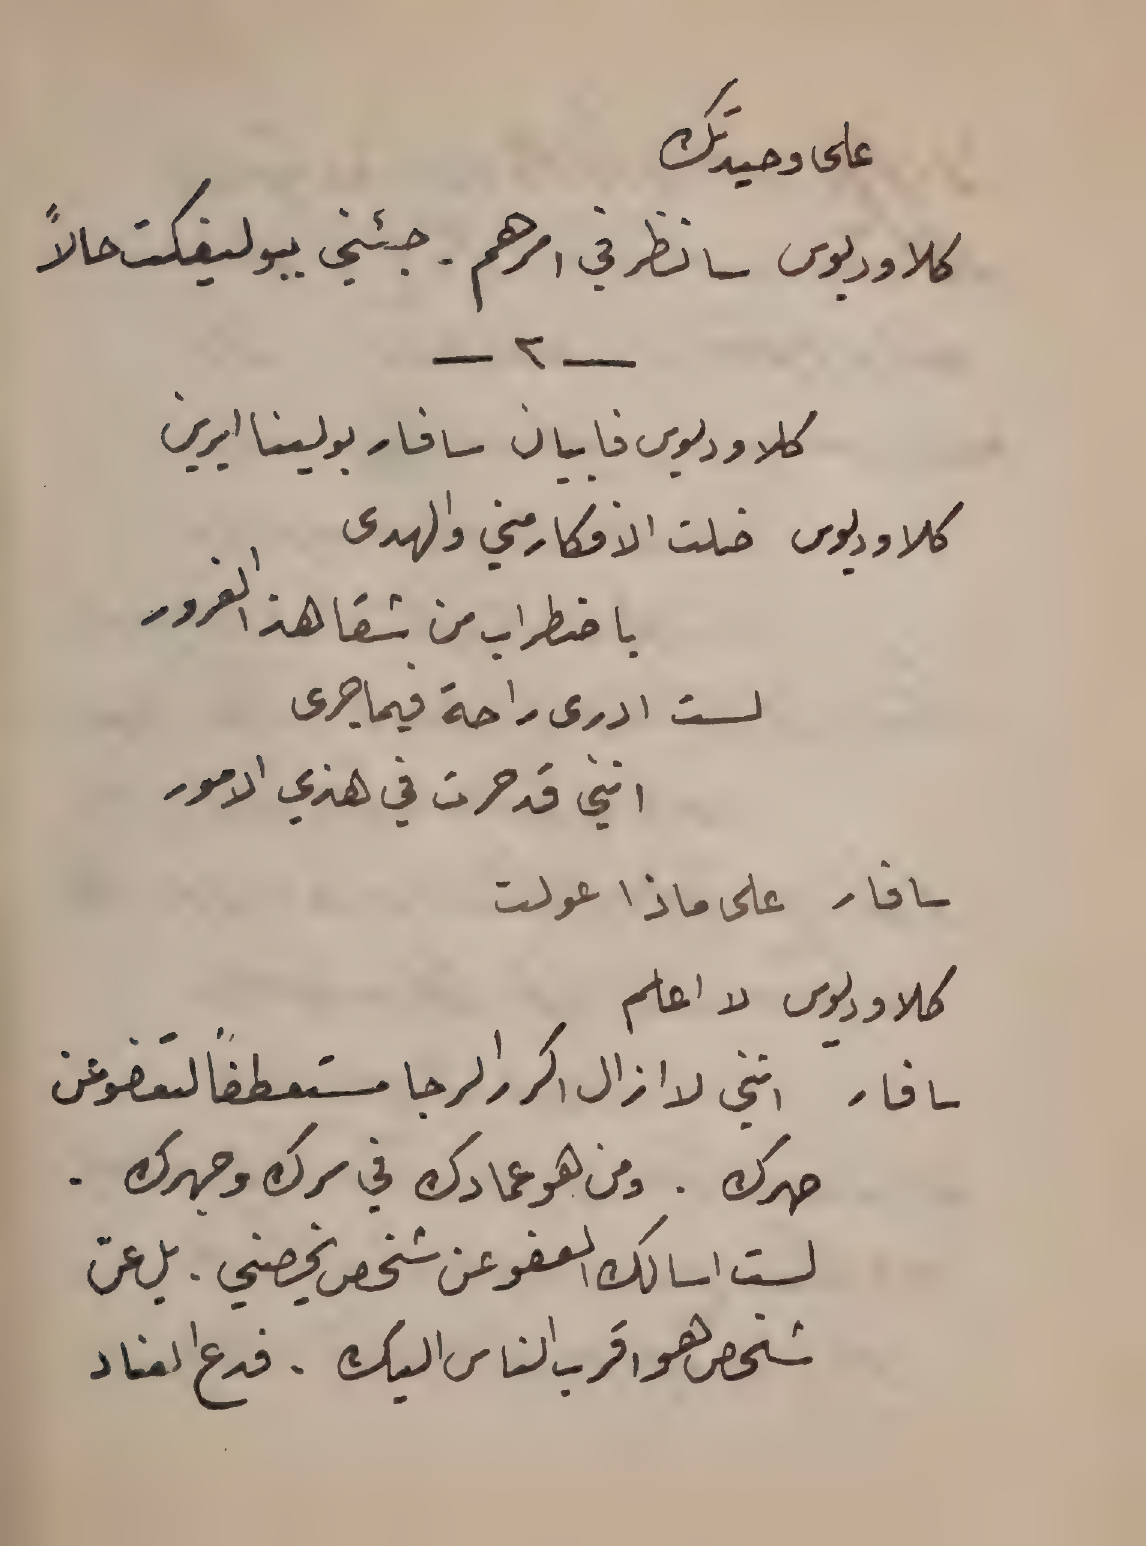 على وحيدتك
كلاوديوس سانظر في امرهم . جئني ببوليفكت حالاً
— ٢ —
كلاوديوس فابيان سافار بولينا ايرين
كلاوديوس ضلت الافكار مني والهدى
باضطراب من شقا هذا الغرور
لست ادرى راحة فيما جرى
انني قد حرت في هذي الامور
سافار على ماذا عولت
كلاوديوس لا اعلم
سافار انني لا ازال اكرر الرجا مستعطفاً لتعفو عن
صهرك . ومن هو عمادك في سرك وجهرك .
لست اسالك العفو عن شخص يخصني . بل عن
شخص هو اقرب الناس اليك . فدع العناد